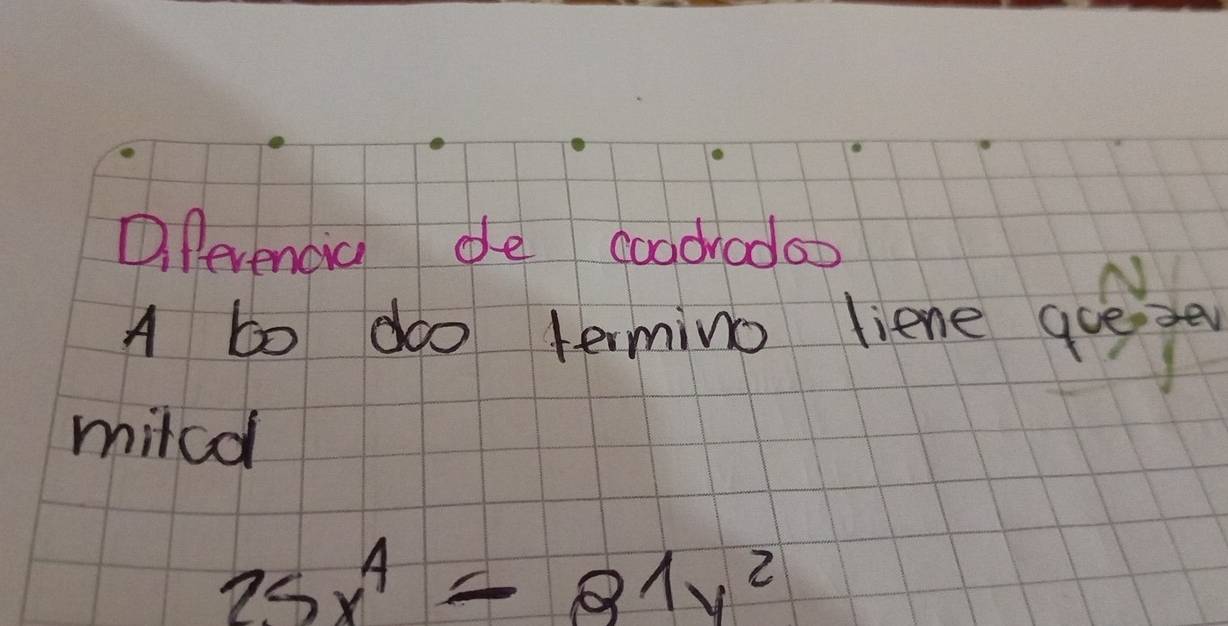 Diferencia de cuadrados
A bo dos termino tiene que ser
mitad
25x⁴ - 81y²